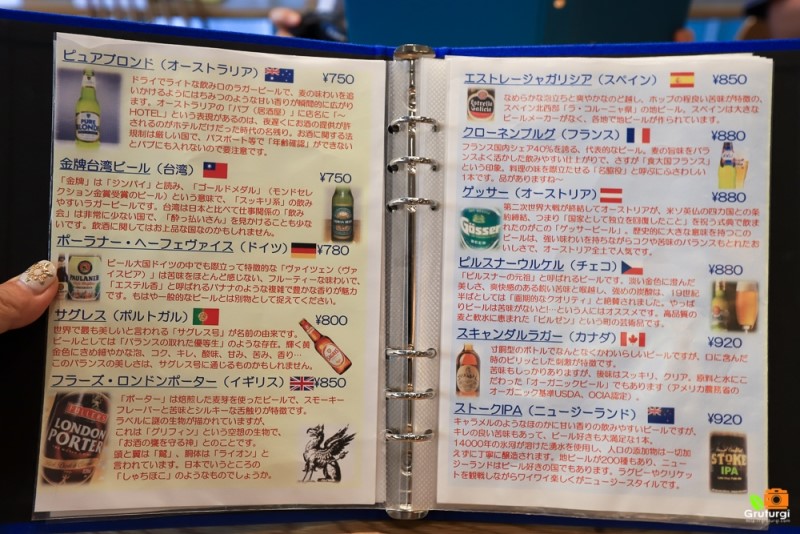 ピュアブロンド（オーストラリア）
¥750
ドライでライトな飲み口のラガービールで、麦の味わいを追
いかけるようにはちみつのような甘い香りが瞬間的に広がり
ます。オーストラリアの「パブ（居酒屋）」に店名に「～
HOTEL」という表現があるのは、夜遅くにお酒の提供が許
されるのがホテルだけだった時代の名残り。お酒に関する法
規制が厳しい国で、パスポート等で「年齢確認」ができない
とパブにも入れないので要注意です。
PURE
BLONDE
金牌台湾ビール（台湾）
¥750
「金牌」は「ジンパイ」と読み、「ゴールドメダル」（モンドセレ
クション金賞受賞のビール）という意味で、「スッキリ系」の飲み
やすいラガービールです。台湾は日本と比べて仕事関係の「飲み
会」は非常に少ない国で、「酔っ払いさん」を見かけることも少な
いです。飲酒に関してはお上品な国なのかもしれません。
ポーラナー・ヘーフェヴァイス（ドイツ）
¥780
PAULANER
ビール大国ドイツの中でも際立って特徴的な「ヴァイツェン（ヴァ
イスビア）」は苦味をほとんど感じない、フルーティーな味わいで、
「エステル香」と呼ばれるバナナのような複雑で豊かな香りが魅力
です。もはや一般的なビールとは別物として捉えてください。
サグレス（ポルトガル）
¥800
世界で最も美しいと言われる「サグレス号」が名前の由来です。
ビールとしては「バランスの取れた優等生」のような存在。輝く黄
金色にきめ細やかな泡、コク、キレ、酸味、甘み、苦み、香り…
このバランスの美しさは、サグレス号に通じるものかもしれません。
フラーズ・ロンドンポーター（イギリス）
¥850
「ポーター」は焙煎した麦芽を使ったビールで、スモーキー
フレーバーと苦味とシルキーな舌触りが特徴です。
ラベルに謎の生物が描かれていますが、
これは「グリフィン」という空想の生物で、
「お酒の甕を守る神」とのことです。
頭と翼は「鷲」、胴体は「ライオン」と
言われています。日本でいうところの
「しゃちほこ」のようなものでしょうか。
FULLER'S
LONDON
PORTER
エストレージャガリシア（スペイン）
¥850
Estrella
Galicia
なめらかな泡立ちと爽やかなのど越し、ホップの程良い苦味が特徴の、
スペイン北西部「ラ・コルーニャ県」の地ビール。スペインは大きな
ビールメーカーがなく、各地で地ビールが作られています。
クローネンブルグ（フランス）
¥880
フランス国内シェア40%を誇る、代表的なビール。麦の旨味をバラ
ンスよく活かした飲みやすい仕上がりで、さすが「食大国フランス」
という印象。料理の味を際立たせる「名脇役」と呼ぶにふさわしい
1本です。品がありますね～
ゲッサー（オーストリア）
¥880
Gösser
第二次世界大戦が終結してオーストリアが、米ソ英仏の四カ国との条
約締結、つまり「国家として独立を回復したこと」を祝う式典で飲ま
れたのがこの「ゲッサービール」。歴史的に大きな意味を持つこのビ
ールは、強い味わいを持ちながらコクや苦味のバランスもとれたおい
しさで、オーストリア全土で人気です。
ピルスナーウルケル（チェコ）
¥880
「ピルスナーの元祖」と呼ばれるビールです。淡い金色に澄んだ
美しさ、爽快感のある鋭い苦味と喉越し、強めの炭酸は、19世紀
半ばとしては「画期的なクオリティ」と絶賛されました。やっぱ
りビールは苦味がないと！…という人にはオススメです。高品質の
麦と軟水に恵まれた「ピルゼン」という町の芸術品です。
スキャンダルラガー（カナダ）
¥920
寸胴型のボトルでなんとなくかわいらしいビールですが、口に含んだ
時のピリッとした刺激が特徴です。
苦味もしっかりありますが、後味はスッキリ、クリア。原料と水にこ
だわった「オーガニックビール」でもあります（アメリカ農務省の
オーガニック基準USDA、OCIA認定）。
ストークIPA（ニュージーランド）
¥920
キャラメルのようなほのかに甘い香りの飲みやすいビールですが、
キレの良い苦味もあって、ビール好きも大満足な1本。
14000年の氷河が溶けた湧水を使用し、人口の添加物は一切加
えずに丁寧に醸造されます。地ビールが200種もあり、ニュー
ジーランドはビール好きの国でもあります。ラグビーやクリケッ
トを観戦しながらワイワイ楽しくがニュージースタイルです。
STOKE
IPA
Grufurgi